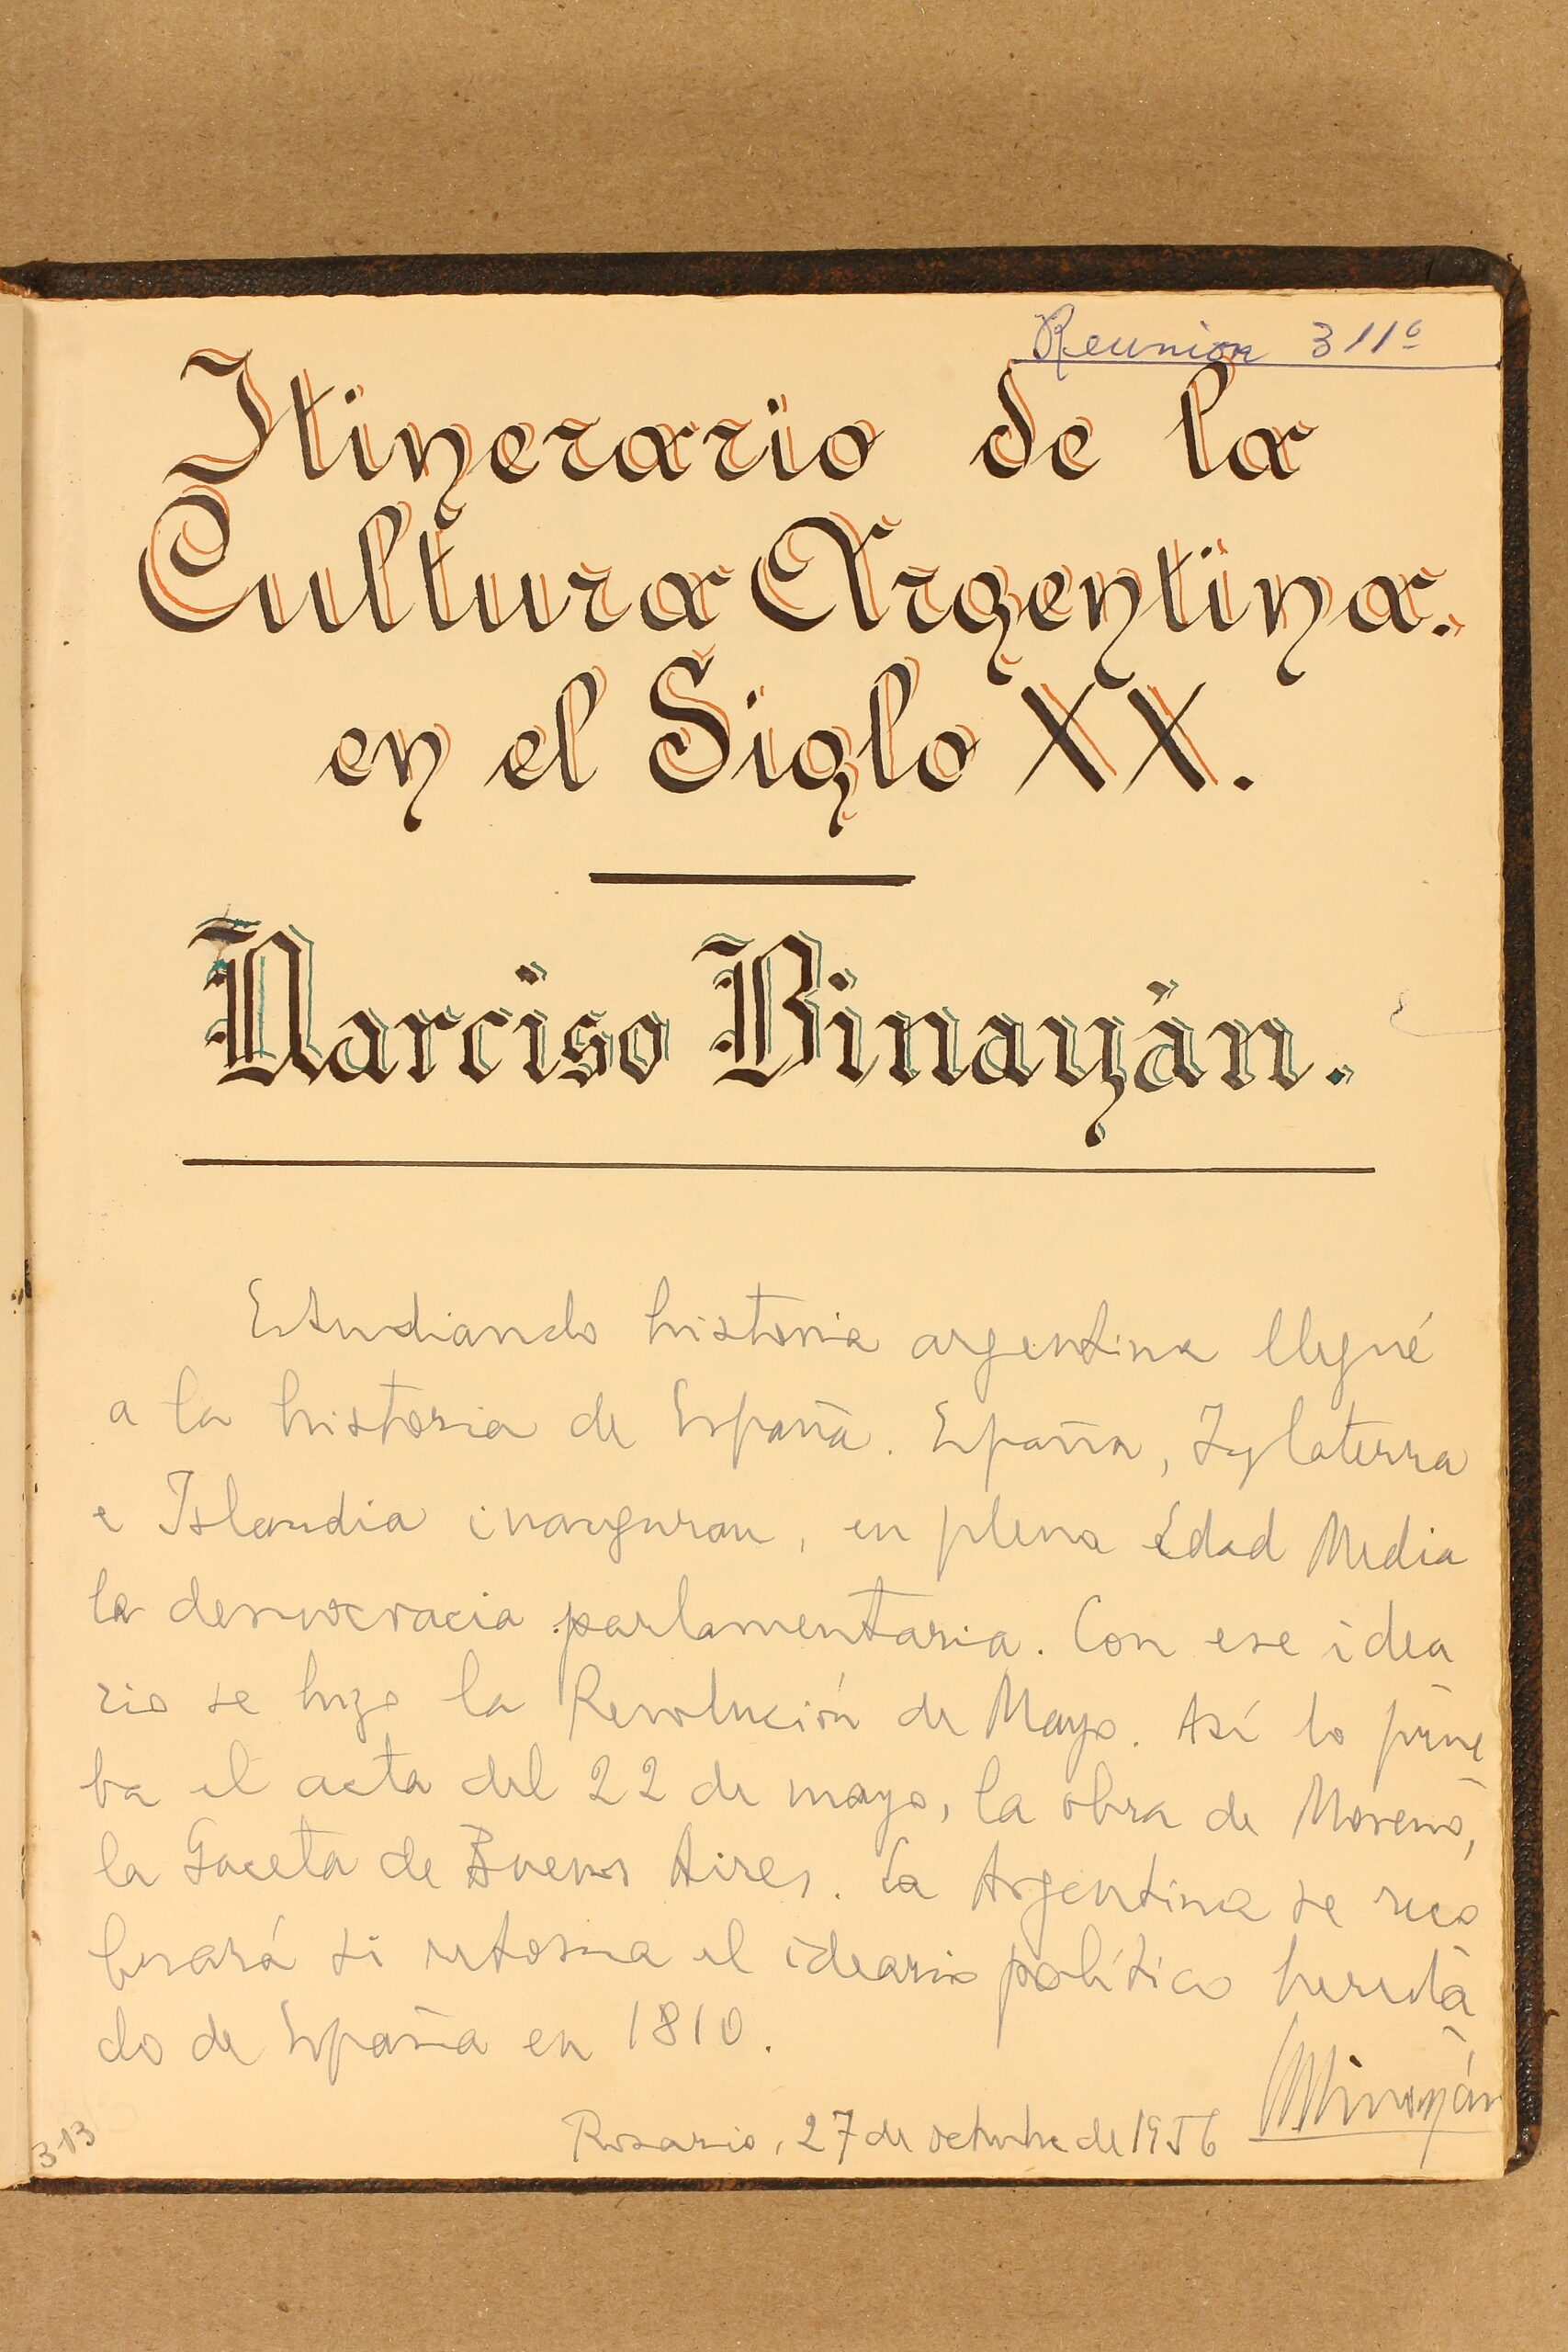 Reunion 311º
Itinerario de la
Cultura Argentina.
en el Siglo XX.
Narciso Binayán.
Estudiando historia argentina llegué
a la historia de España. España, Inglaterra
e Islandia inauguran, en plena Edad Media
la democracia parlamentaria. Con ese idea
rio se hizo la Revolución de Mayo. Así lo prue
ba el acta del 22 de mayo, la obra de Moreno,
la Gaceta de Buenos Aires. La Argentina se reco
brará si retoma el ideario político hereda
do de España en 1810.
NBinayán
Rosario, 27 de octubre de 1956
313